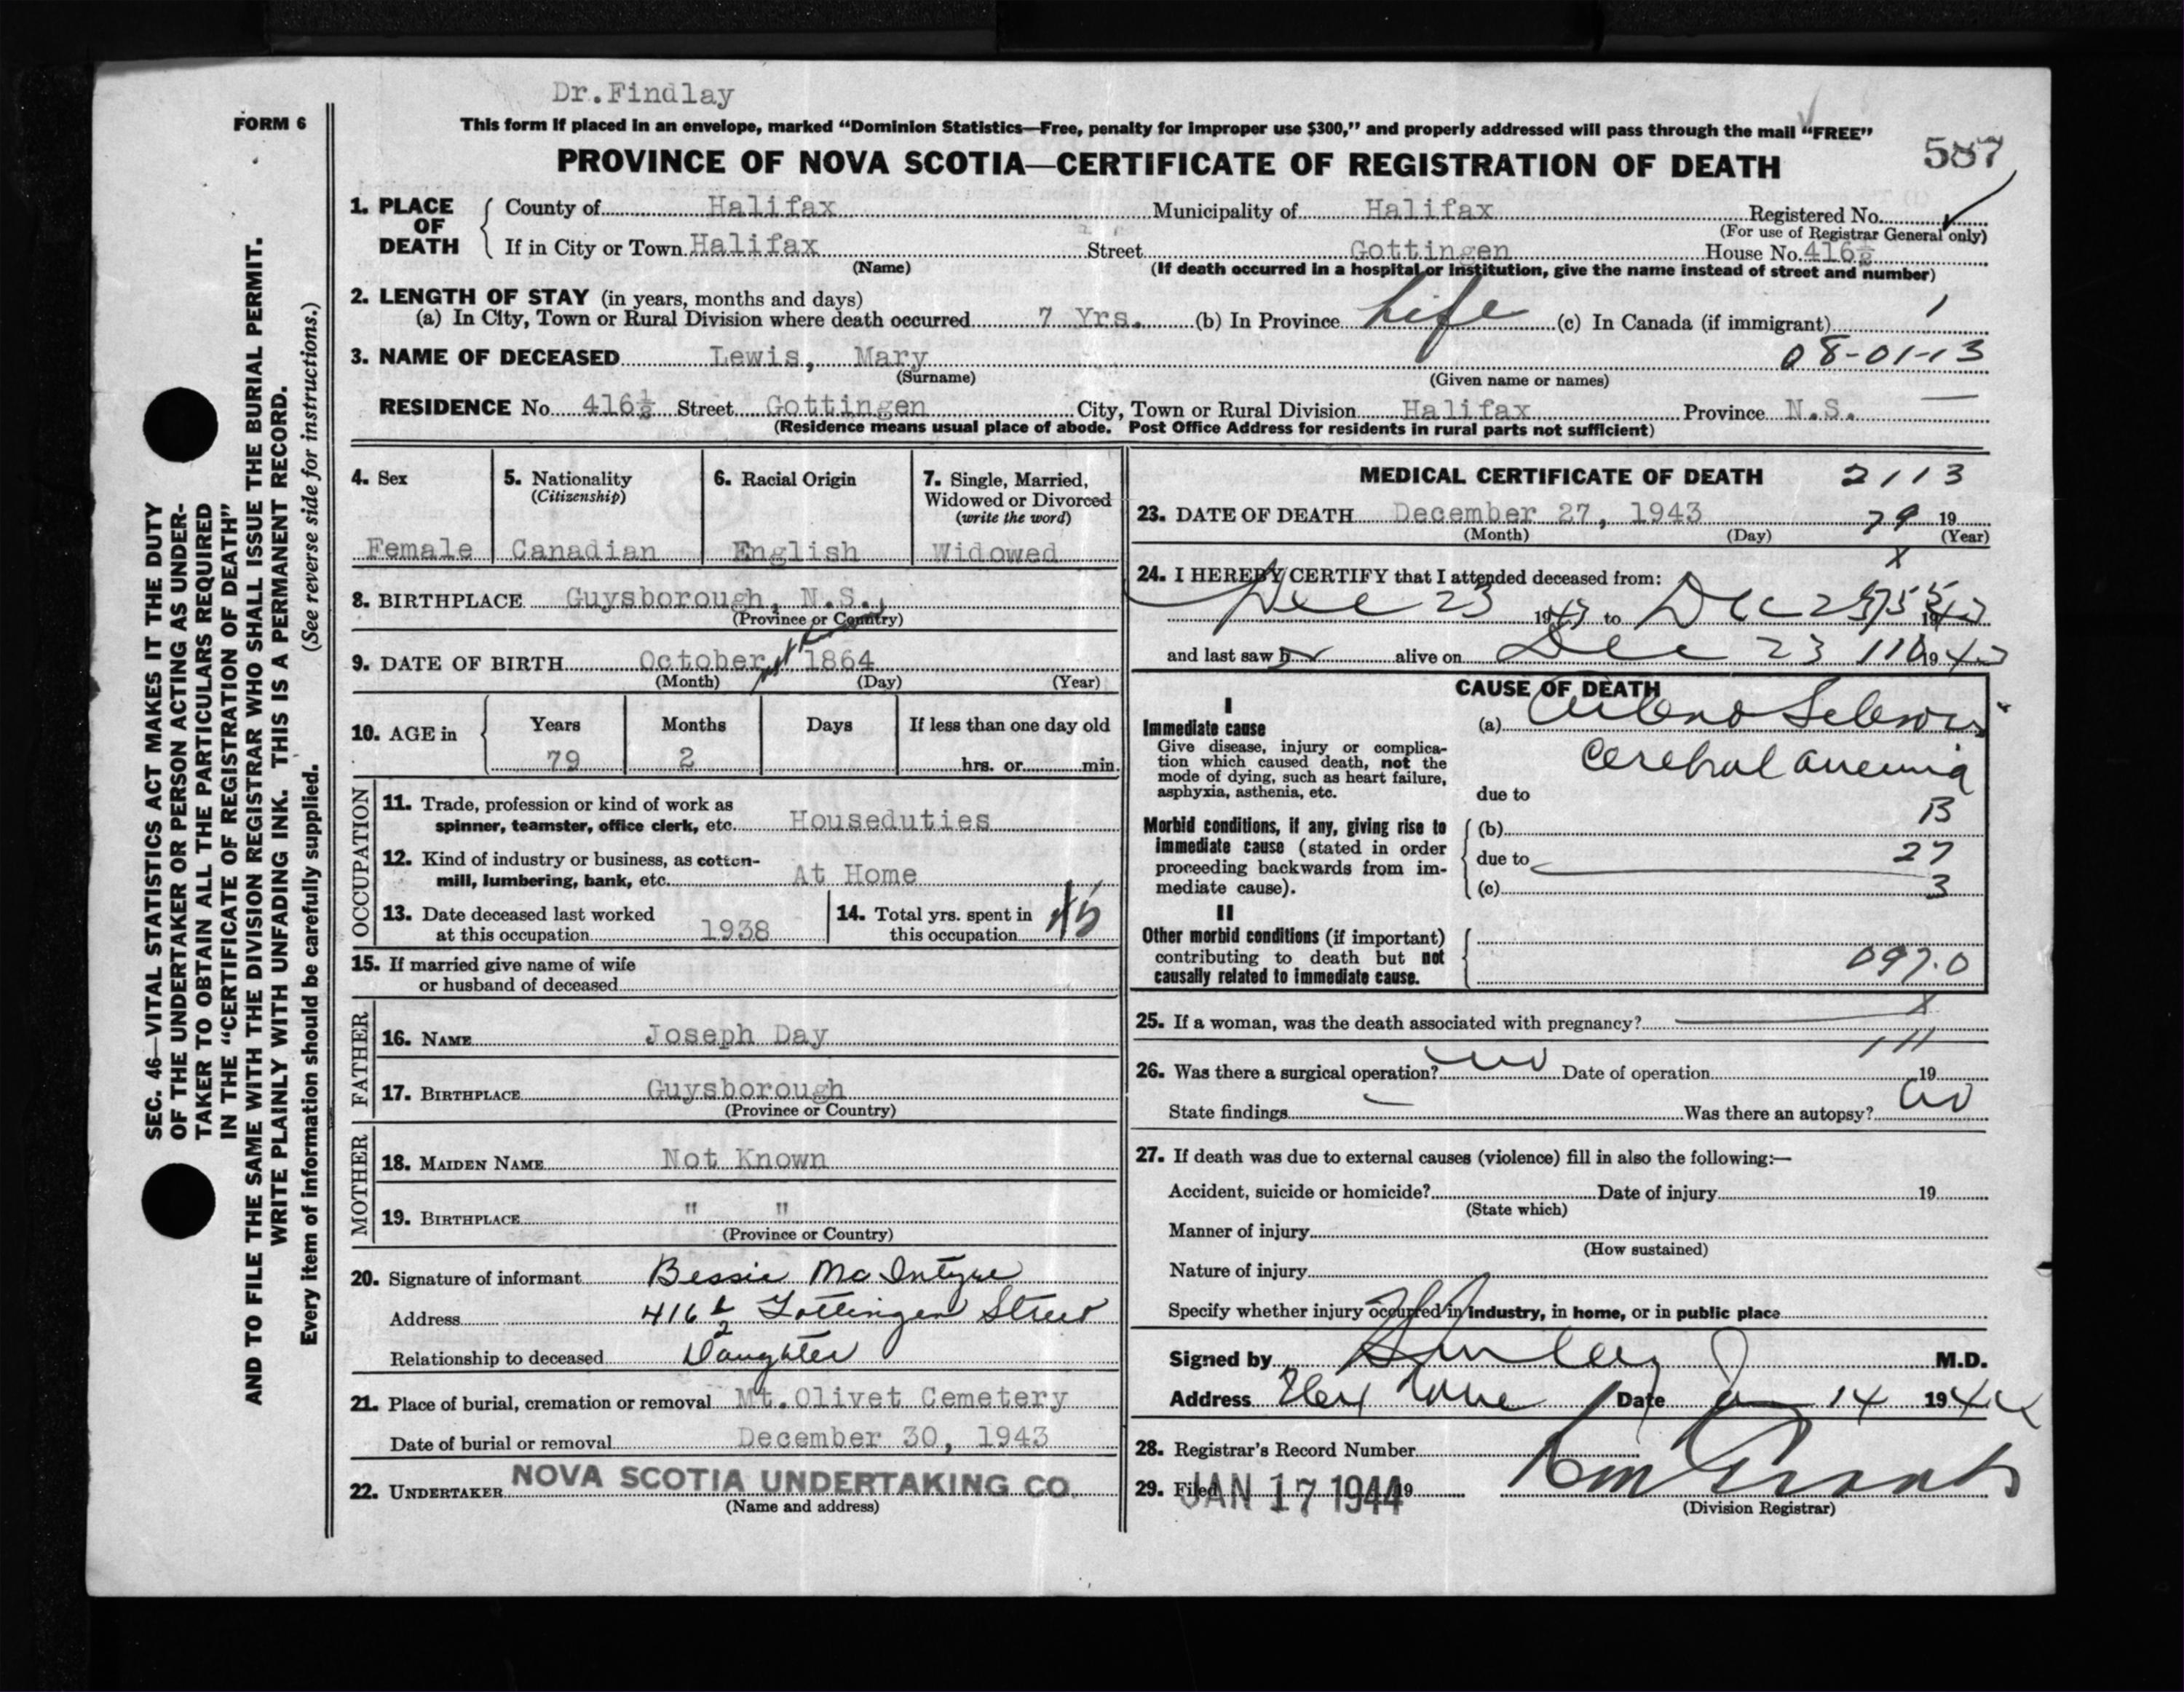 Dr.Findlay
FORM 6
This form if placed in an envelope, marked “Dominion Statistics—Free, penalty for improper use $300,” and properly addressed will pass through the mail “FREE”
587
PROVINCE OF NOVA SCOTIA—CERTIFICATE OF REGISTRATION OF DEATH
1. PLACE OF DEATH
County of Halifax Municipality of Halifax Registered No.
(For use of Registrar General only)
If in City or Town Halifax Street Gottingen House No. 416½
(Name) (If death occurred in a hospital or institution, give the name instead of street and number)
2. LENGTH OF STAY (in years, months and days)
(a) In City, Town or Rural Division where death occurred 7 Yrs. (b) In Province Life (c) In Canada (if immigrant)
3. NAME OF DECEASED Lewis, Mary 08-01-13
(Surname) (Given name or names)
RESIDENCE No. 416½ Street Gottingen City, Town or Rural Division Halifax Province N.S.
(Residence means usual place of abode. Post Office Address for residents in rural parts not sufficient)
4. Sex
Female
5. Nationality
(Citizenship)
Canadian
6. Racial Origin
English
7. Single, Married,
Widowed or Divorced
(write the word)
Widowed
8. BIRTHPLACE Guysborough, N.S.
(Province or Country)
9. DATE OF BIRTH October 1864
(Month) (Day) (Year)
10. AGE in
Years Months Days If less than one day old
79 2 hrs. or min
OCCUPATION
11. Trade, profession or kind of work as
spinner, teamster, office clerk, etc. Houseduties
12. Kind of industry or business, as cotton-
mill, lumbering, bank, etc. At Home
13. Date deceased last worked
at this occupation 1938
14. Total yrs. spent in
this occupation
15. If married give name of wife
or husband of deceased
FATHER
16. NAME Joseph Day
17. BIRTHPLACE Guysborough
(Province or Country)
MOTHER
18. MAIDEN NAME Not Known
19. BIRTHPLACE " "
(Province or Country)
20. Signature of informant Bessie McIntyre
Address 416½ Gottingen Street
Relationship to deceased Daughter
21. Place of burial, cremation or removal Mt.Olivet Cemetery
Date of burial or removal December 30, 1943
22. UNDERTAKER NOVA SCOTIA UNDERTAKING CO.
(Name and address)
MEDICAL CERTIFICATE OF DEATH 2113
23. DATE OF DEATH December 27, 1943 79 19
(Month) (Day) (Year)
24. I HEREBY CERTIFY that I attended deceased from:
Dec 23 1943 to Dec 19
and last saw h alive on Dec 23 19 43
CAUSE OF DEATH
I
Immediate cause
Give disease, injury or complica-
tion which caused death, not the
mode of dying, such as heart failure,
asphyxia, asthenia, etc.
(a)
Cerebral anemia
due to
Morbid conditions, if any, giving rise to
immediate cause (stated in order
proceeding backwards from im-
mediate cause).
(b) B
due to 27
(c) 3
II
Other morbid conditions (if important)
contributing to death but not
causally related to immediate cause.
097.0
25. If a woman, was the death associated with pregnancy?
111
26. Was there a surgical operation? no Date of operation 19
State findings Was there an autopsy? no
27. If death was due to external causes (violence) fill in also the following:—
Accident, suicide or homicide? Date of injury 19
(State which)
Manner of injury
(How sustained)
Nature of injury
Specify whether injury occurred in industry, in home, or in public place
Signed by M.D.
Address Date Jan 14 1944
28. Registrar's Record Number
29. Filed JAN 17 1944 19
(Division Registrar)
SEC. 46—VITAL STATISTICS ACT MAKES IT THE DUTY
OF THE UNDERTAKER OR PERSON ACTING AS UNDER-
TAKER TO OBTAIN ALL THE PARTICULARS REQUIRED
IN THE “CERTIFICATE OF REGISTRATION OF DEATH”
AND TO FILE THE SAME WITH THE DIVISION REGISTRAR WHO SHALL ISSUE THE BURIAL PERMIT.
WRITE PLAINLY WITH UNFADING INK. THIS IS A PERMANENT RECORD.
Every item of information should be carefully supplied. (See reverse side for instructions.)